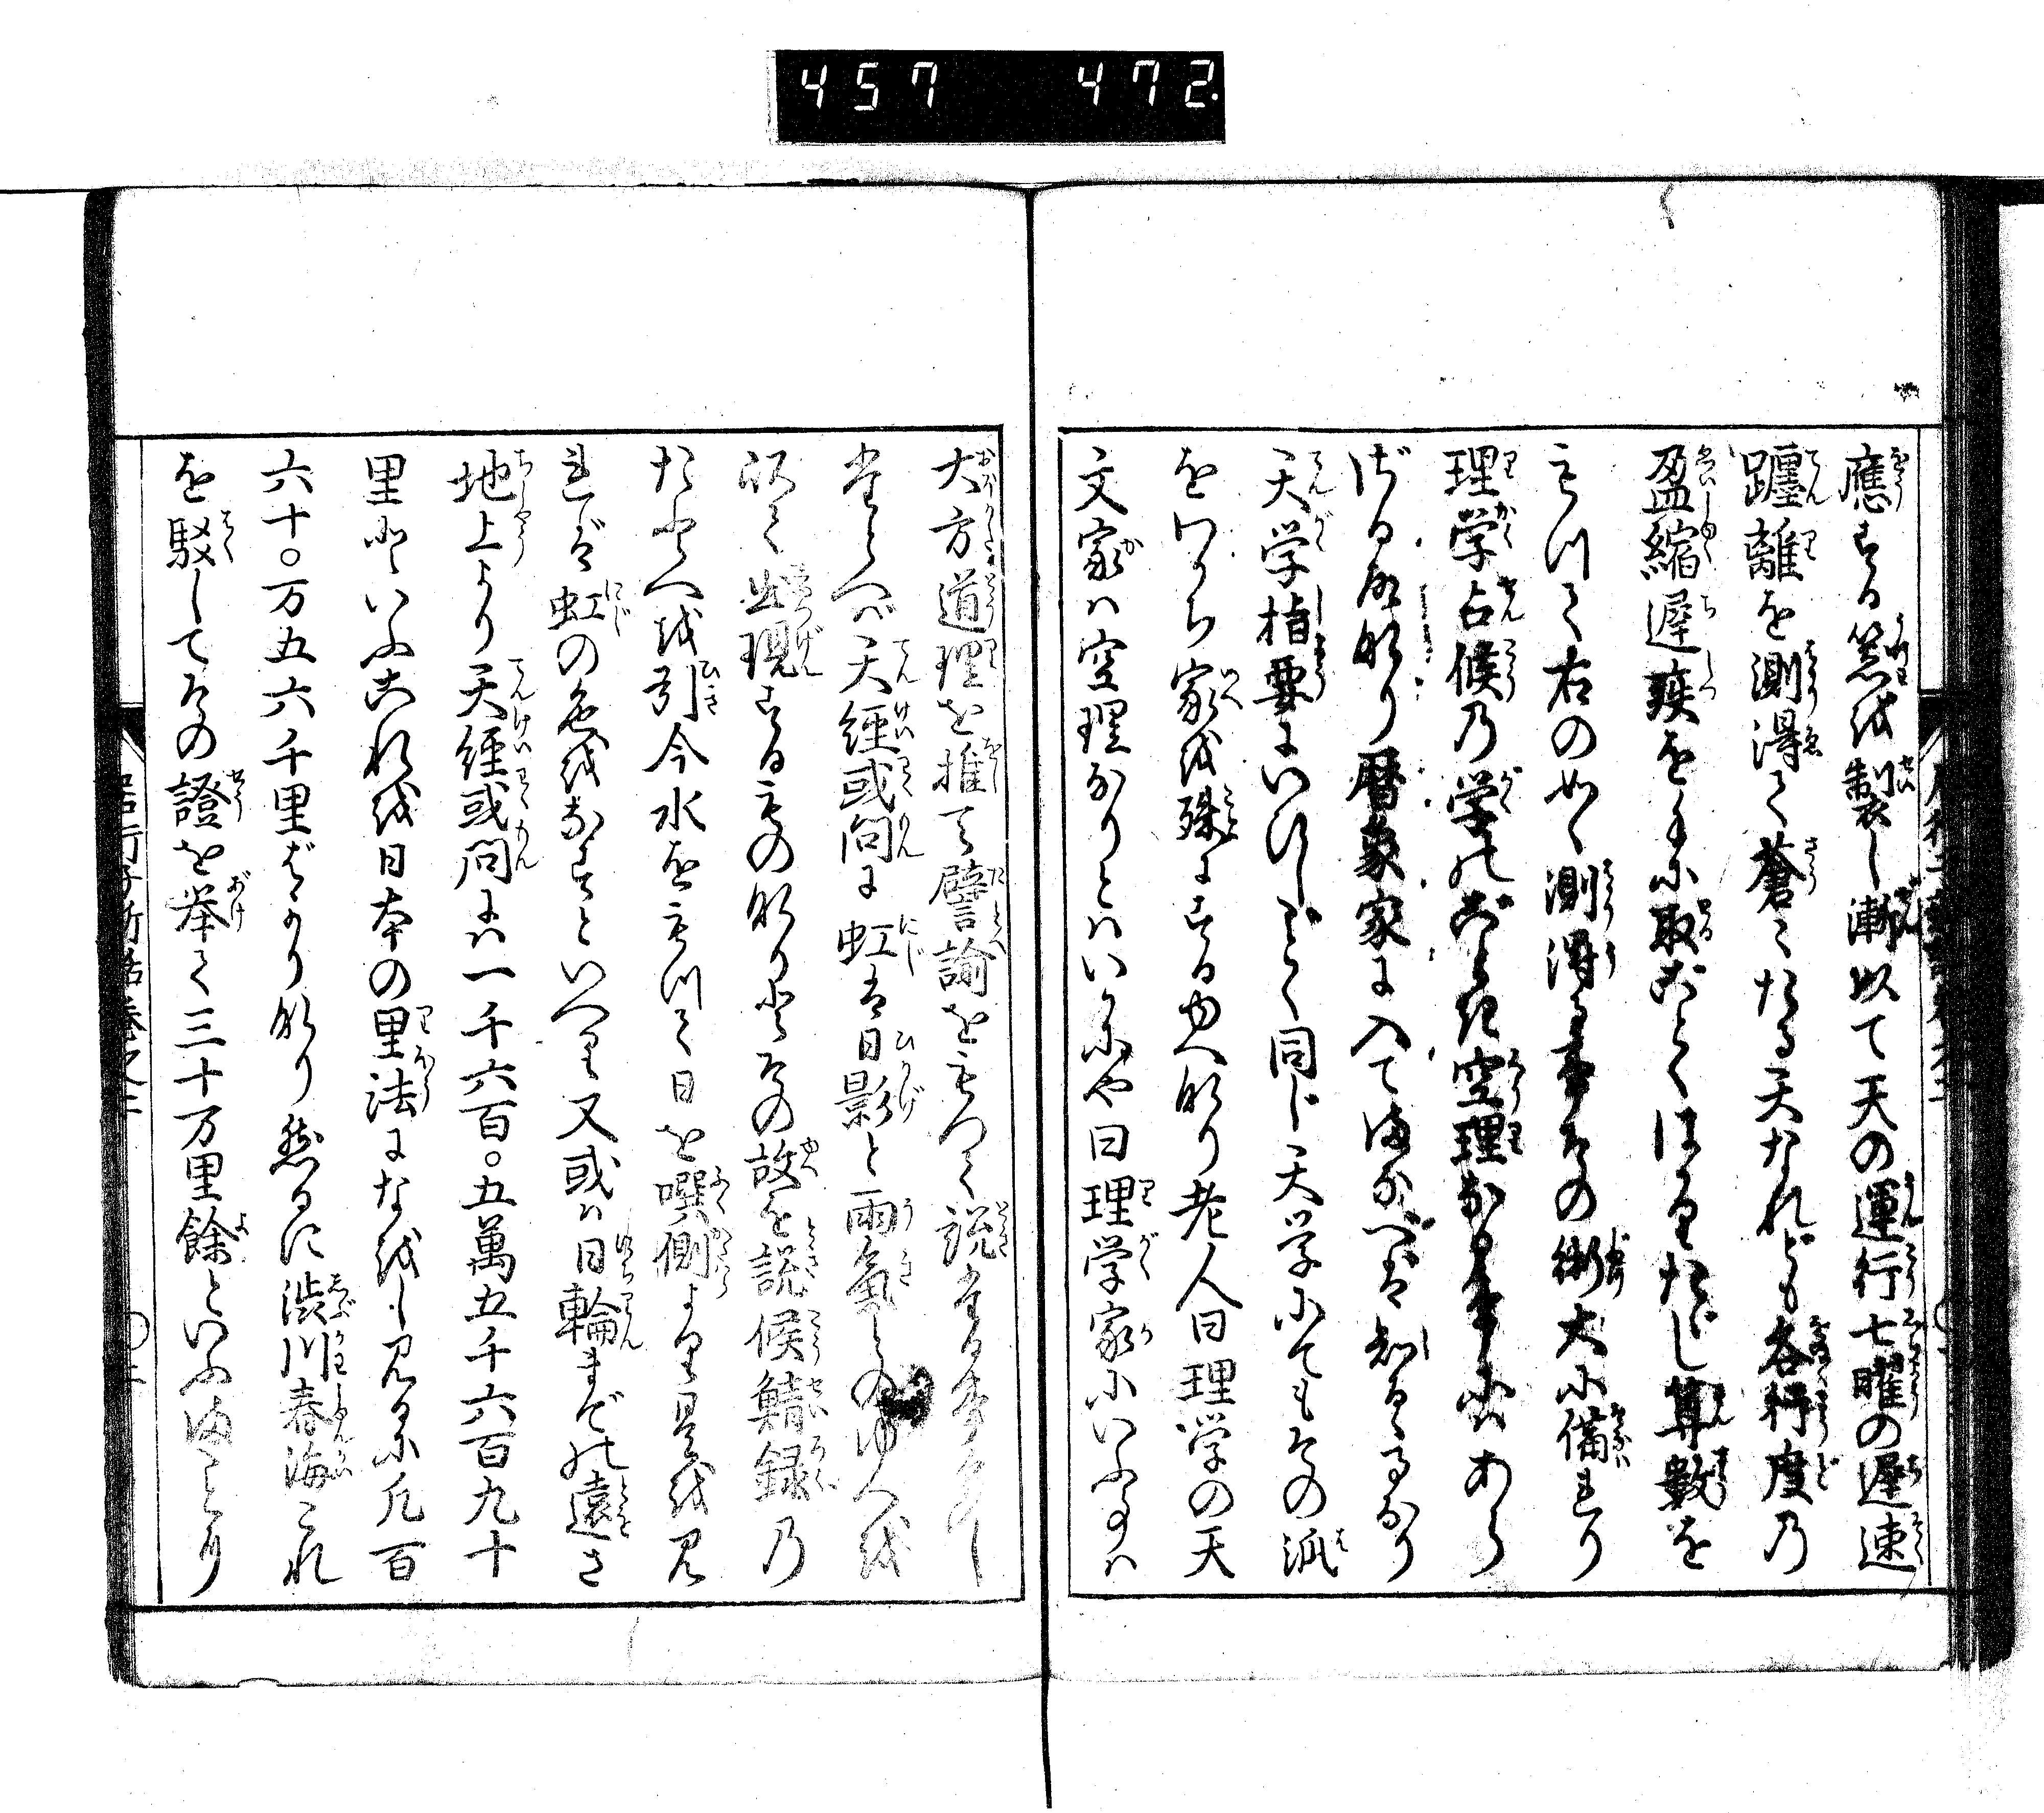 457 472
應する器を製し漸以て天の運行七曜の遅速
躔離を測得て蒼々たる天なれども各行度乃
盈縮遅疾を手に取ごとくはかりたゞし算數を
もつて右の如く測得る事その術大に備れり
理学占候乃学のごとき空理なる事にはあら
ざる故なり暦象家に入てまなべば知るゝ事なり
天学指要にいひしごとく同じ天学にてもその派
をわかち家を殊にするゆへなり老人曰理学の天
文家は空理なりとはいかにや曰理学家にいふ事は
大方道理を推て譬諭をもつて説たる事多し
たとへば天經或問に虹は日影と雨氣とのゆへを
以て出現するものなりとその故を説候鯖録乃
たとへを引今水をもつて日を噀側より是を見
れば虹の色をなすといへり又或は日輪までの遠さ
地上より天經或問には一千六百〇五萬五千六百九十
里といふこれを日本の里法になをし見るに凡百
六十〇万五六千里ばかりなり然るに渋川春海これ
を駁してその證を挙て三十万里餘といふまことり